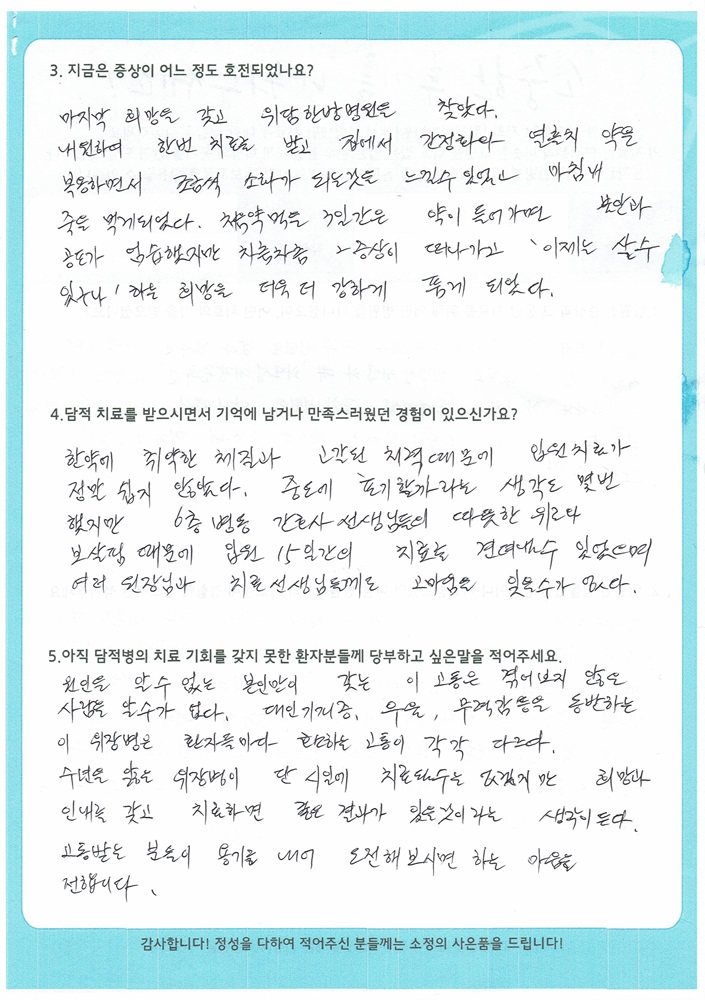 3. 지금은 증상이 어느 정도 호전되었나요?
마지막 희망을 갖고 위담한방병원을 찾았다.
내원하여 한번 치료를 받고 집에서 간정화와 열흘치 약을
복용하면서 조금씩 소화가 되는것을 느낄수 있었고 마침내
죽을 먹게되었다. 첫약먹을 3일간은 약이 들어가면 불안과
공포가 엄습했지만 차츰차츰 증상이 떠나가고 '이제는 살수
있구나' 하는 희망을 더욱 더 강하게 품게 되었다.
4.담적 치료를 받으시면서 기억에 남거나 만족스러웠던 경험이 있으신가요?
한약에 취약한 체질과 고갈된 체력때문에 입원치료가
정말 쉽지 않았다. 중도에 포기할까라는 생각도 몇번
했지만 6층 병동 간호사선생님들의 따뜻한 위로와
보살핌 때문에 입원 15일간의 치료를 견뎌낼수 있었으며
여러 원장님과 치료선생님들께도 고마움을 잊을수가 없다.
5.아직 담적병의 치료 기회를 갖지 못한 환자분들께 당부하고 싶은말을 적어주세요.
원인을 알수 없는 본인만이 갖는 이 고통은 겪어보지 않은
사람은 알수가 없다. 대인기피증, 우울, 무력감등을 동반하는
이 위장병은 환자들마다 호소하는 고통이 각각 다르다.
수년을 앓은 위장병이 단 시일에 치료될수는 없겠지만 희망과
인내를 갖고 치료하면 좋은 결과가 있을것이라는 생각이든다.
고통받는 분들이 용기를 내어 도전해보시면 하는 마음을
전합니다.
감사합니다! 정성을 다하여 적어주신 분들께는 소정의 사은품을 드립니다!